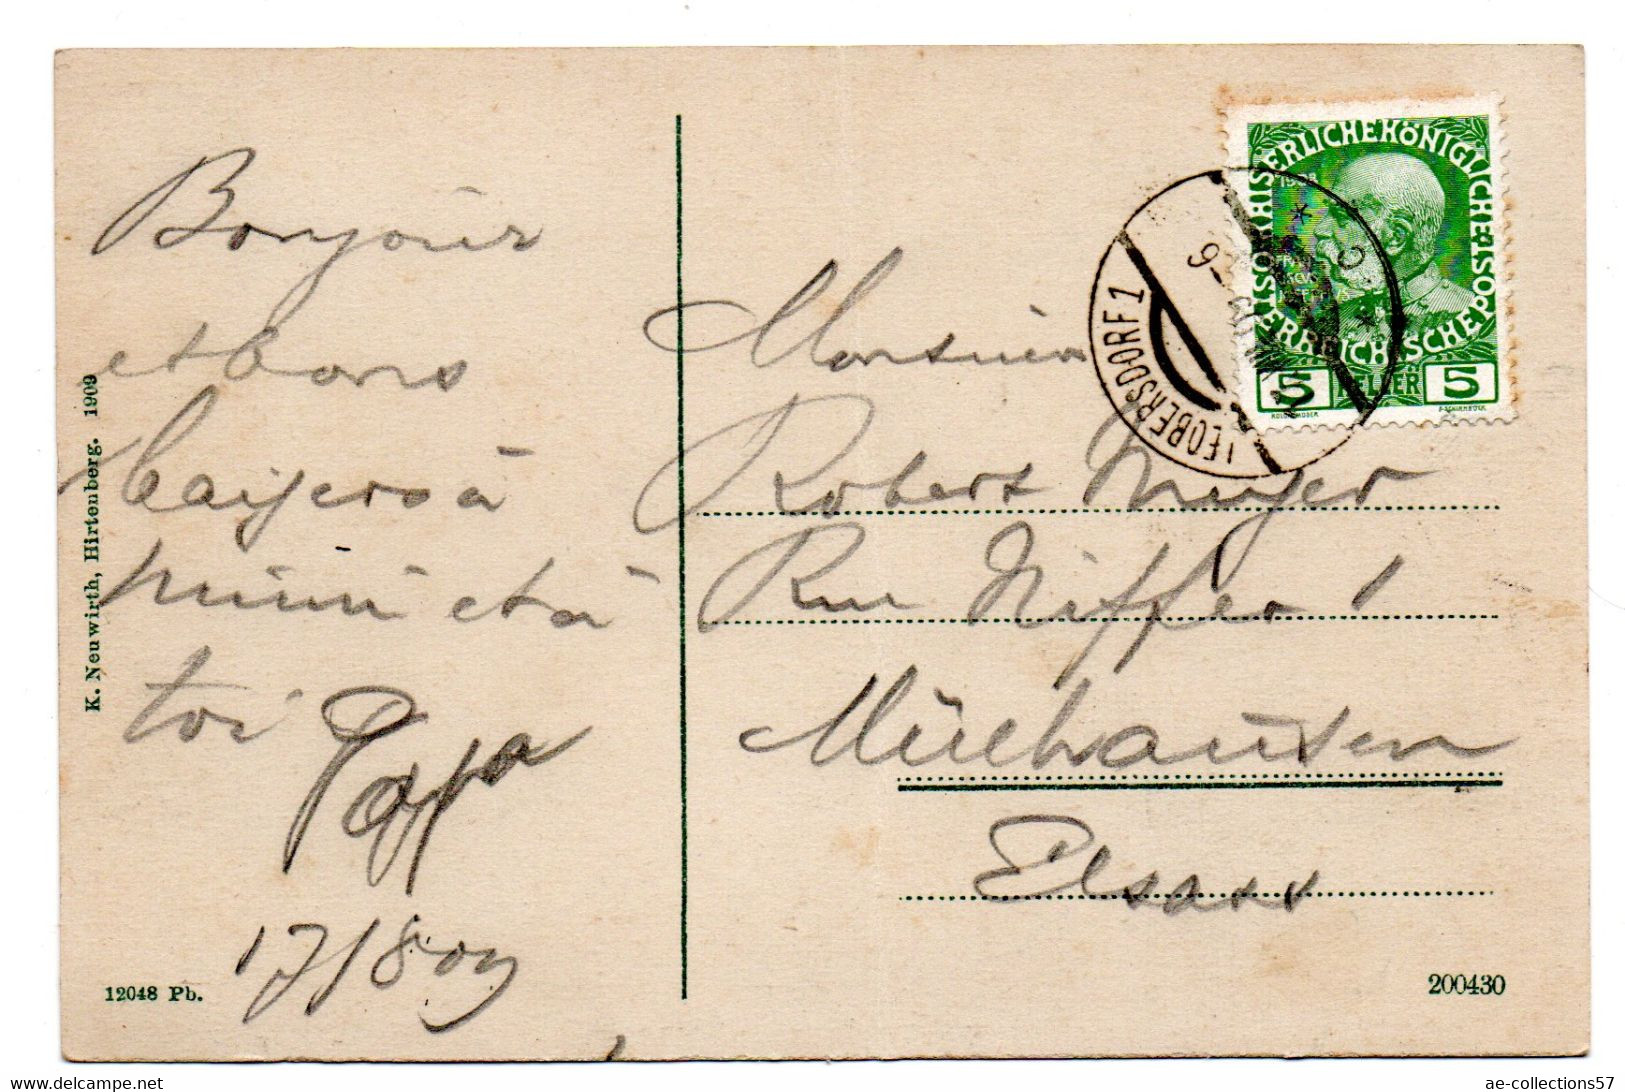 Bonjour
et bons
baisers à
mimi et à
toi
Papa
17/8 09
K. Neuwirth, Hirtenberg. 1909
12048 Pb.
Monsieur
Robert Meyer
Rue Niffer 1
Mülhausen
Elsass
200430
KAISERLICHE KÖNIGLICHE
ÖSTERREICHISCHE POST
1908
5 HELLER 5
LEOBERSDORF 1
www.delcampe.net
ae-collections57